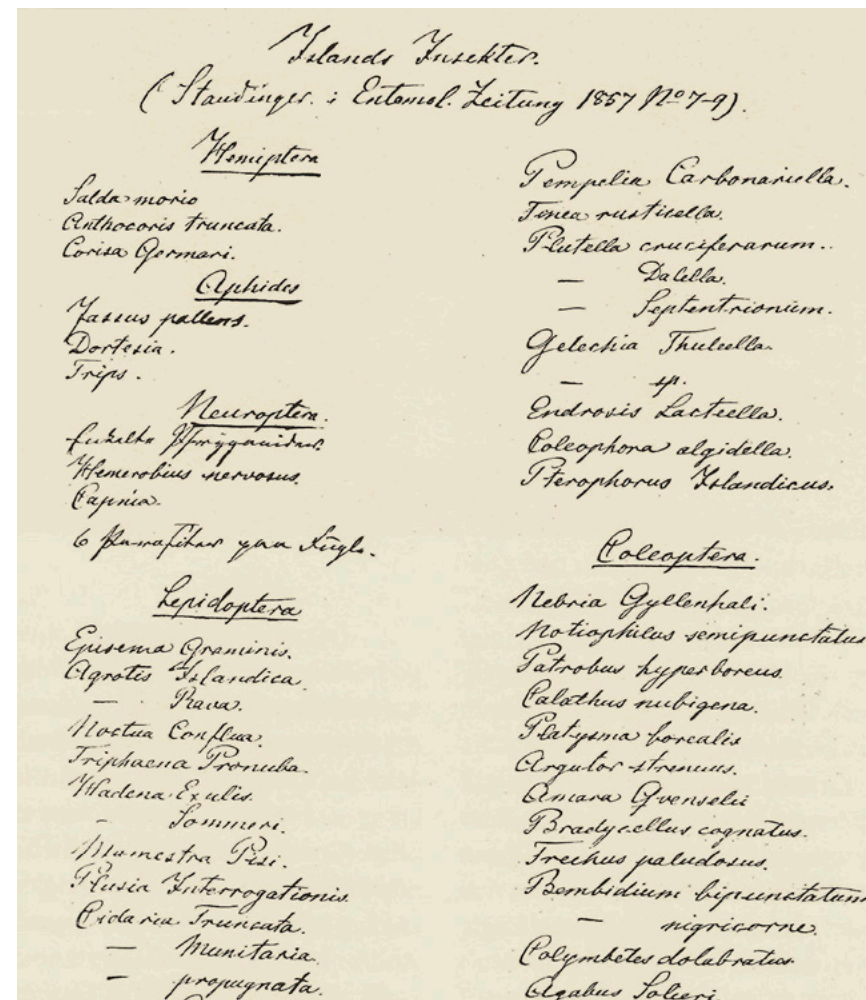 Islands Insekter.
(Staudinger. i Entomol. Zeitung 1857 No 7-9).
Hemiptera
Salda morio
Anthocoris truncata.
Corisa Germari.
Aphides
Jassus pallens.
Dortesia.
Trips.
Neuroptera.
Enkelte Phryganider.
Hemerobius nervosus.
Capnia.
6 Parasiter paa Fugle.
Lepidoptera
Episema Graminis.
Agrotis Islandica.
— Rava.
Noctua Conflua.
Triphaena Pronuba.
Hadena Exulis.
- Sommeri.
Mamestra Pisi.
Plusia Interrogationis.
Cidaria Truncata.
— Munitaria.
— propugnata.
Pempelia Carbonariella.
Tinea rustisella.
Plutella cruciferarum.
— Dalella.
— Septentrionum.
Gelechia Thuleella.
— sp.
Endrosis Lacteella.
Coleophora algidella.
Pterophorus Islandicus.
Coleoptera.
Nebria Gyllenhali.
Notiophilus semipunctatus
Patrobus hyperboreus.
Calathus nubigena.
Platysma borealis
Argutor strenuus.
Amara Qvenselii
Bradycellus cognatus.
Trechus paludosus.
Bembidium bipunctatum
— nigricorne.
Colymbetes dolabratus
Agabus Solieri.